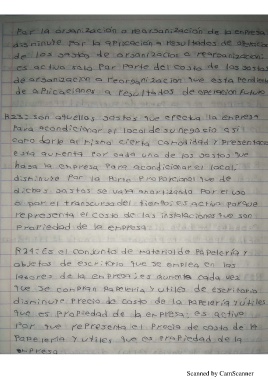 Por la organización o reorganización de la empresa
disminute por la aplicación a resultados de
de los gastos de organización o reorganización
es activo solo por parte del costo de los gastos
de organización o reorganización que esta pendiente
de aplicaciones a resultados de operación futuro
R23: son aquellos gastos que efectua la empresa
para acondicionar el local de su negocio asi
como darle al mismo cierta comodidad y presentación
esta aumenta por cada uno de los gastos que
haga la empresa para acondicionar el local,
disminute por la Parte Proporcional que de
dichos gastos se vaya amortizando por el uso
o por el transcurso del tiempo: es activo porque
representa el costo de las instalaciones que son
propiedad de la empresa.
R24: Es el conjunto de material de papelería y
objetos de escritorio que se emplea en las
labores de la empresa: es aumenta cada vez
que se compran papelería y utiles de escritorio
disminute precio de costo de la papelería y útiles
que es propiedad de la empresa: es activo
Por que representa el precio de costo de la
Papelería y utiles que es propiedad de la
empresa
Scanned by CamScanner